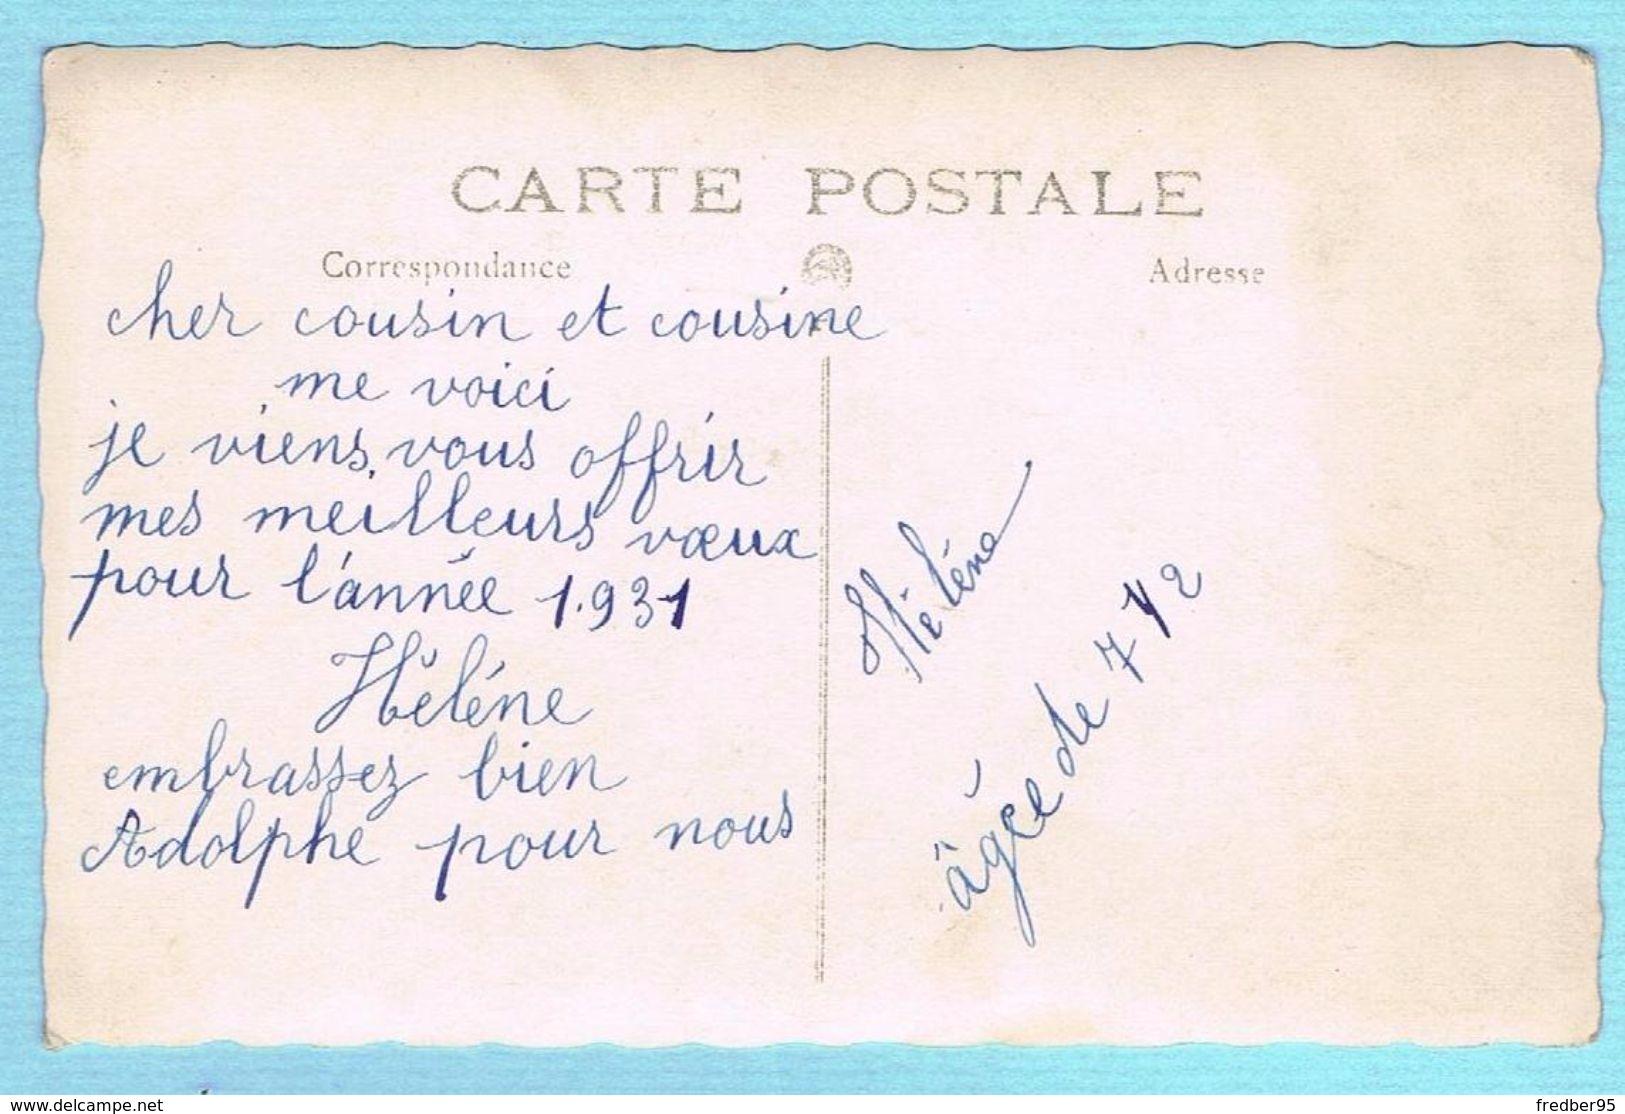 CARTE POSTALE
Correspondance
Adresse
cher cousin et cousine
me voici
je viens vous offrir
mes meilleurs vœux
pour l'année 1.931
Hélène
embrassez bien
Adolphe pour nous
Hélène
âgée de 7 1/2
www.delcampe.net
fredber95